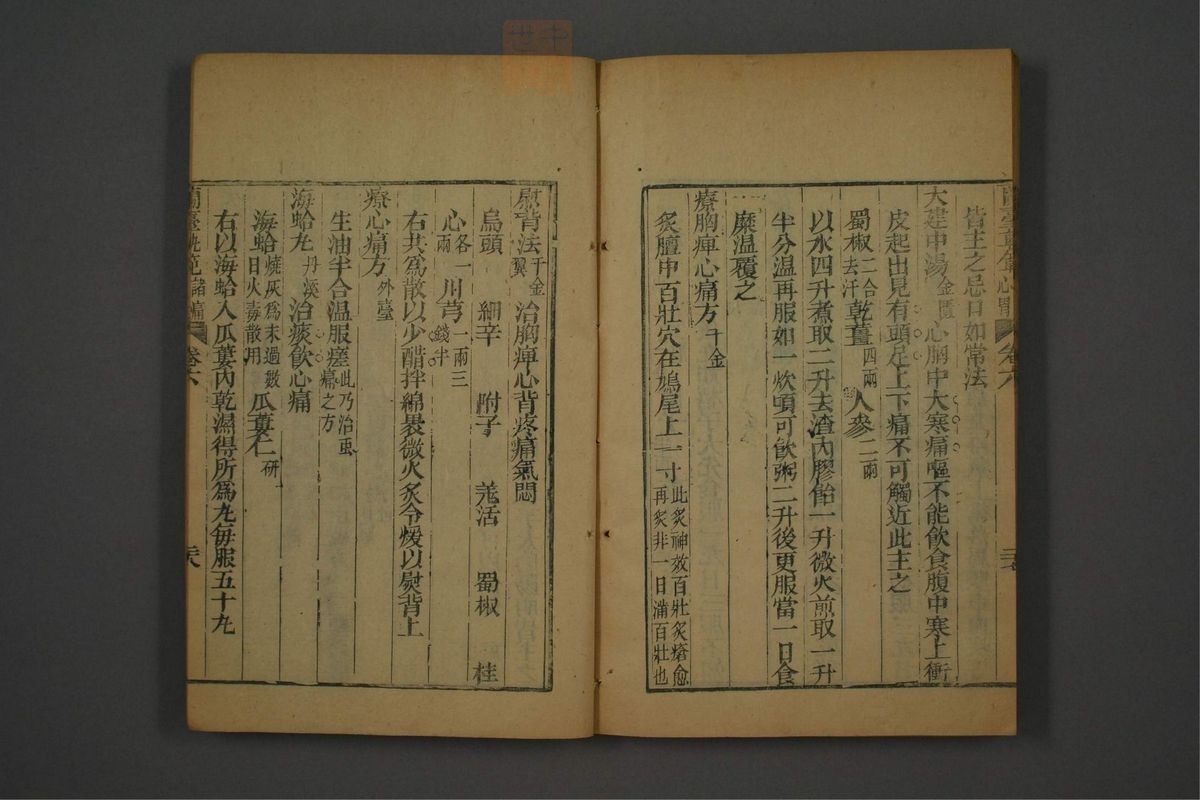 皆主之忌日如常法
大建中湯金匱 心胸中大寒痛嘔不能飲食腹中寒上衝
皮起出見有頭足上下痛不可觸近此主之
蜀椒二合去汗 乾薑四兩 人參二兩
以水四升煮取二升去渣內膠飴一升微火煎取一升
半分温再服如一炊頃可飲粥二升後更服當一日食
糜温覆之
療胸痺心痛方千金
炙膻中百壯穴在鳩尾上一寸此炙神效百壯炙瘥愈再炙非一日滿百壯也
熨背法千金翼 治胸痺心背疼痛氣悶
烏頭 細辛 附子 羗活 蜀椒 桂
心各一兩 川芎一兩三錢半
右共爲散以少醋拌綿裹微火炙令煖以熨背上
療心痛方外臺
生油半合温服瘥此乃治䖝痛之方
海蛤丸丹溪 治痰飲心痛
海蛤燒灰爲末過數日火毒散用 瓜蔞仁研
右以海蛤入瓜蔞內乾濕得所爲丸每服五十丸
蘭臺軌範 卷六